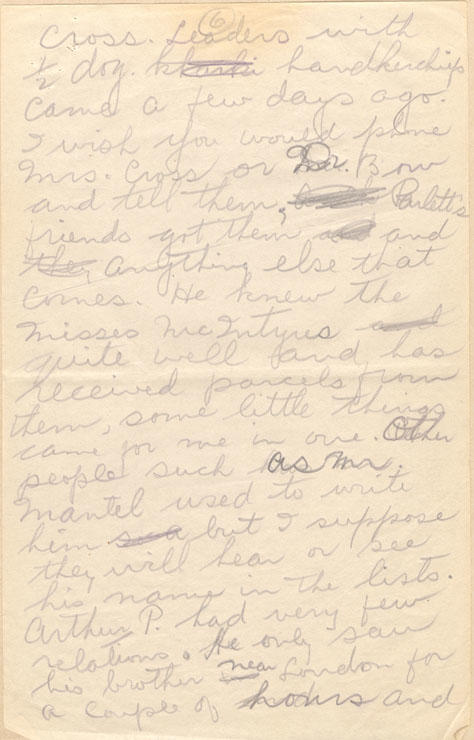 6
Cross. Leaders with
1/2 doz. kharki handkerchiefs
came a few days ago.
I wish you would phone
Mrs. Cross or Dr. Bow
and tell them, Parlett's
friends got them and
they, anything else that
comes. He knew the
Misses McIntyres and
quite well and has
received parcels from
them, some little things
came for me in one. Other
people such as Mr.
Mantel used to write
him but I suppose
they will hear or see
his name in the lists.
Arthur P. had very few
relations. He only saw
his brother near London for
a couple of hours and